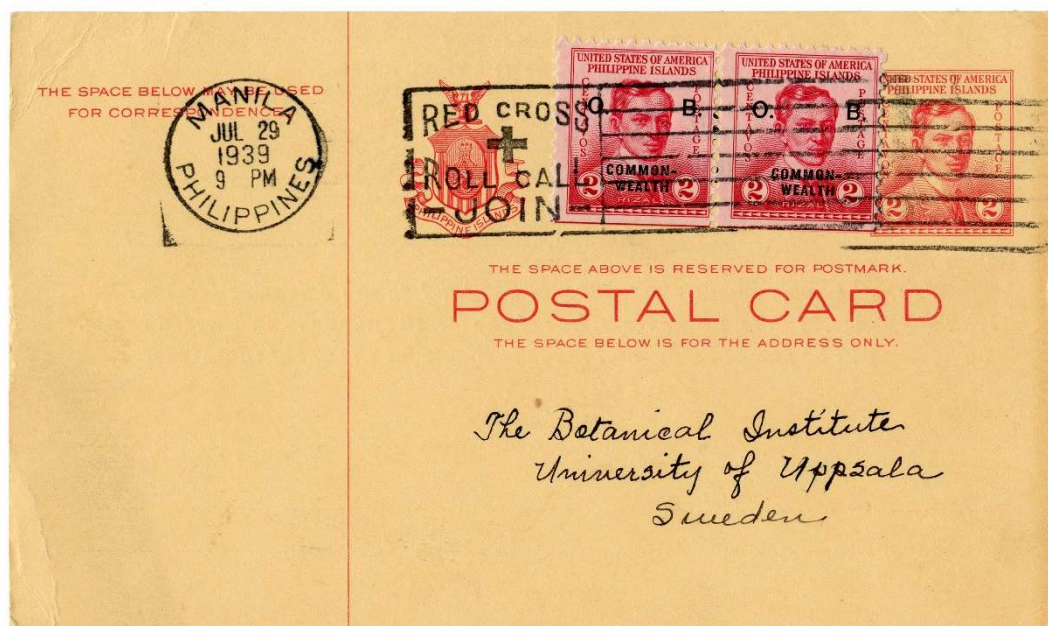 THE SPACE BELOW MAY BE USED
FOR CORRESPONDENCE.
MANILA
JUL 29
1939
9 PM
PHILIPPINES
RED CROSS
ROLL CALL
JOIN
PHILIPPINE ISLANDS
UNITED STATES OF AMERICA
PHILIPPINE ISLANDS
CENTAVOS
POSTAGE
O. B.
COMMON-
WEALTH
2 2
RIZAL
UNITED STATES OF AMERICA
PHILIPPINE ISLANDS
CENTAVOS
POSTAGE
O. B.
COMMON-
WEALTH
2 2
RIZAL
UNITED STATES OF AMERICA
PHILIPPINE ISLANDS
POSTAGE
2 2
THE SPACE ABOVE IS RESERVED FOR POSTMARK.
POSTAL CARD
THE SPACE BELOW IS FOR THE ADDRESS ONLY.
The Botanical Institute
University of Uppsala
Sweden